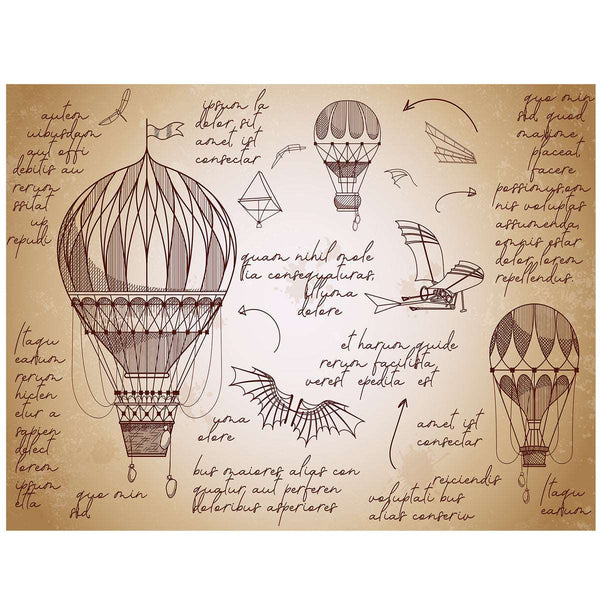 autem
uibusdam
aut offi
debitis au
rerum
ssitat
up
repudi
ipsum la
dolor sit
amet, ist
consectar
quo min
sd, quod
maxime
placeat
facere
possimus,om
nis voluptas
assumenda,
omnis estar
dolor lorem
repellendus.
quam nihil mole
tia consequaturas,
illyma
dolore
et harum quide
rerum facilista
verest epedita est
Itaqu
earum
rerum
hicten
etur a
sapien
delect
lorem
ipsum
elta
quo min
sd
uoma
olore
bus maiores alias con
quatur aut perferen
doloribus asperiores
amet, ist
consectar
reiciendis
voluptati bus
alias conseriv
Itaqu
earum